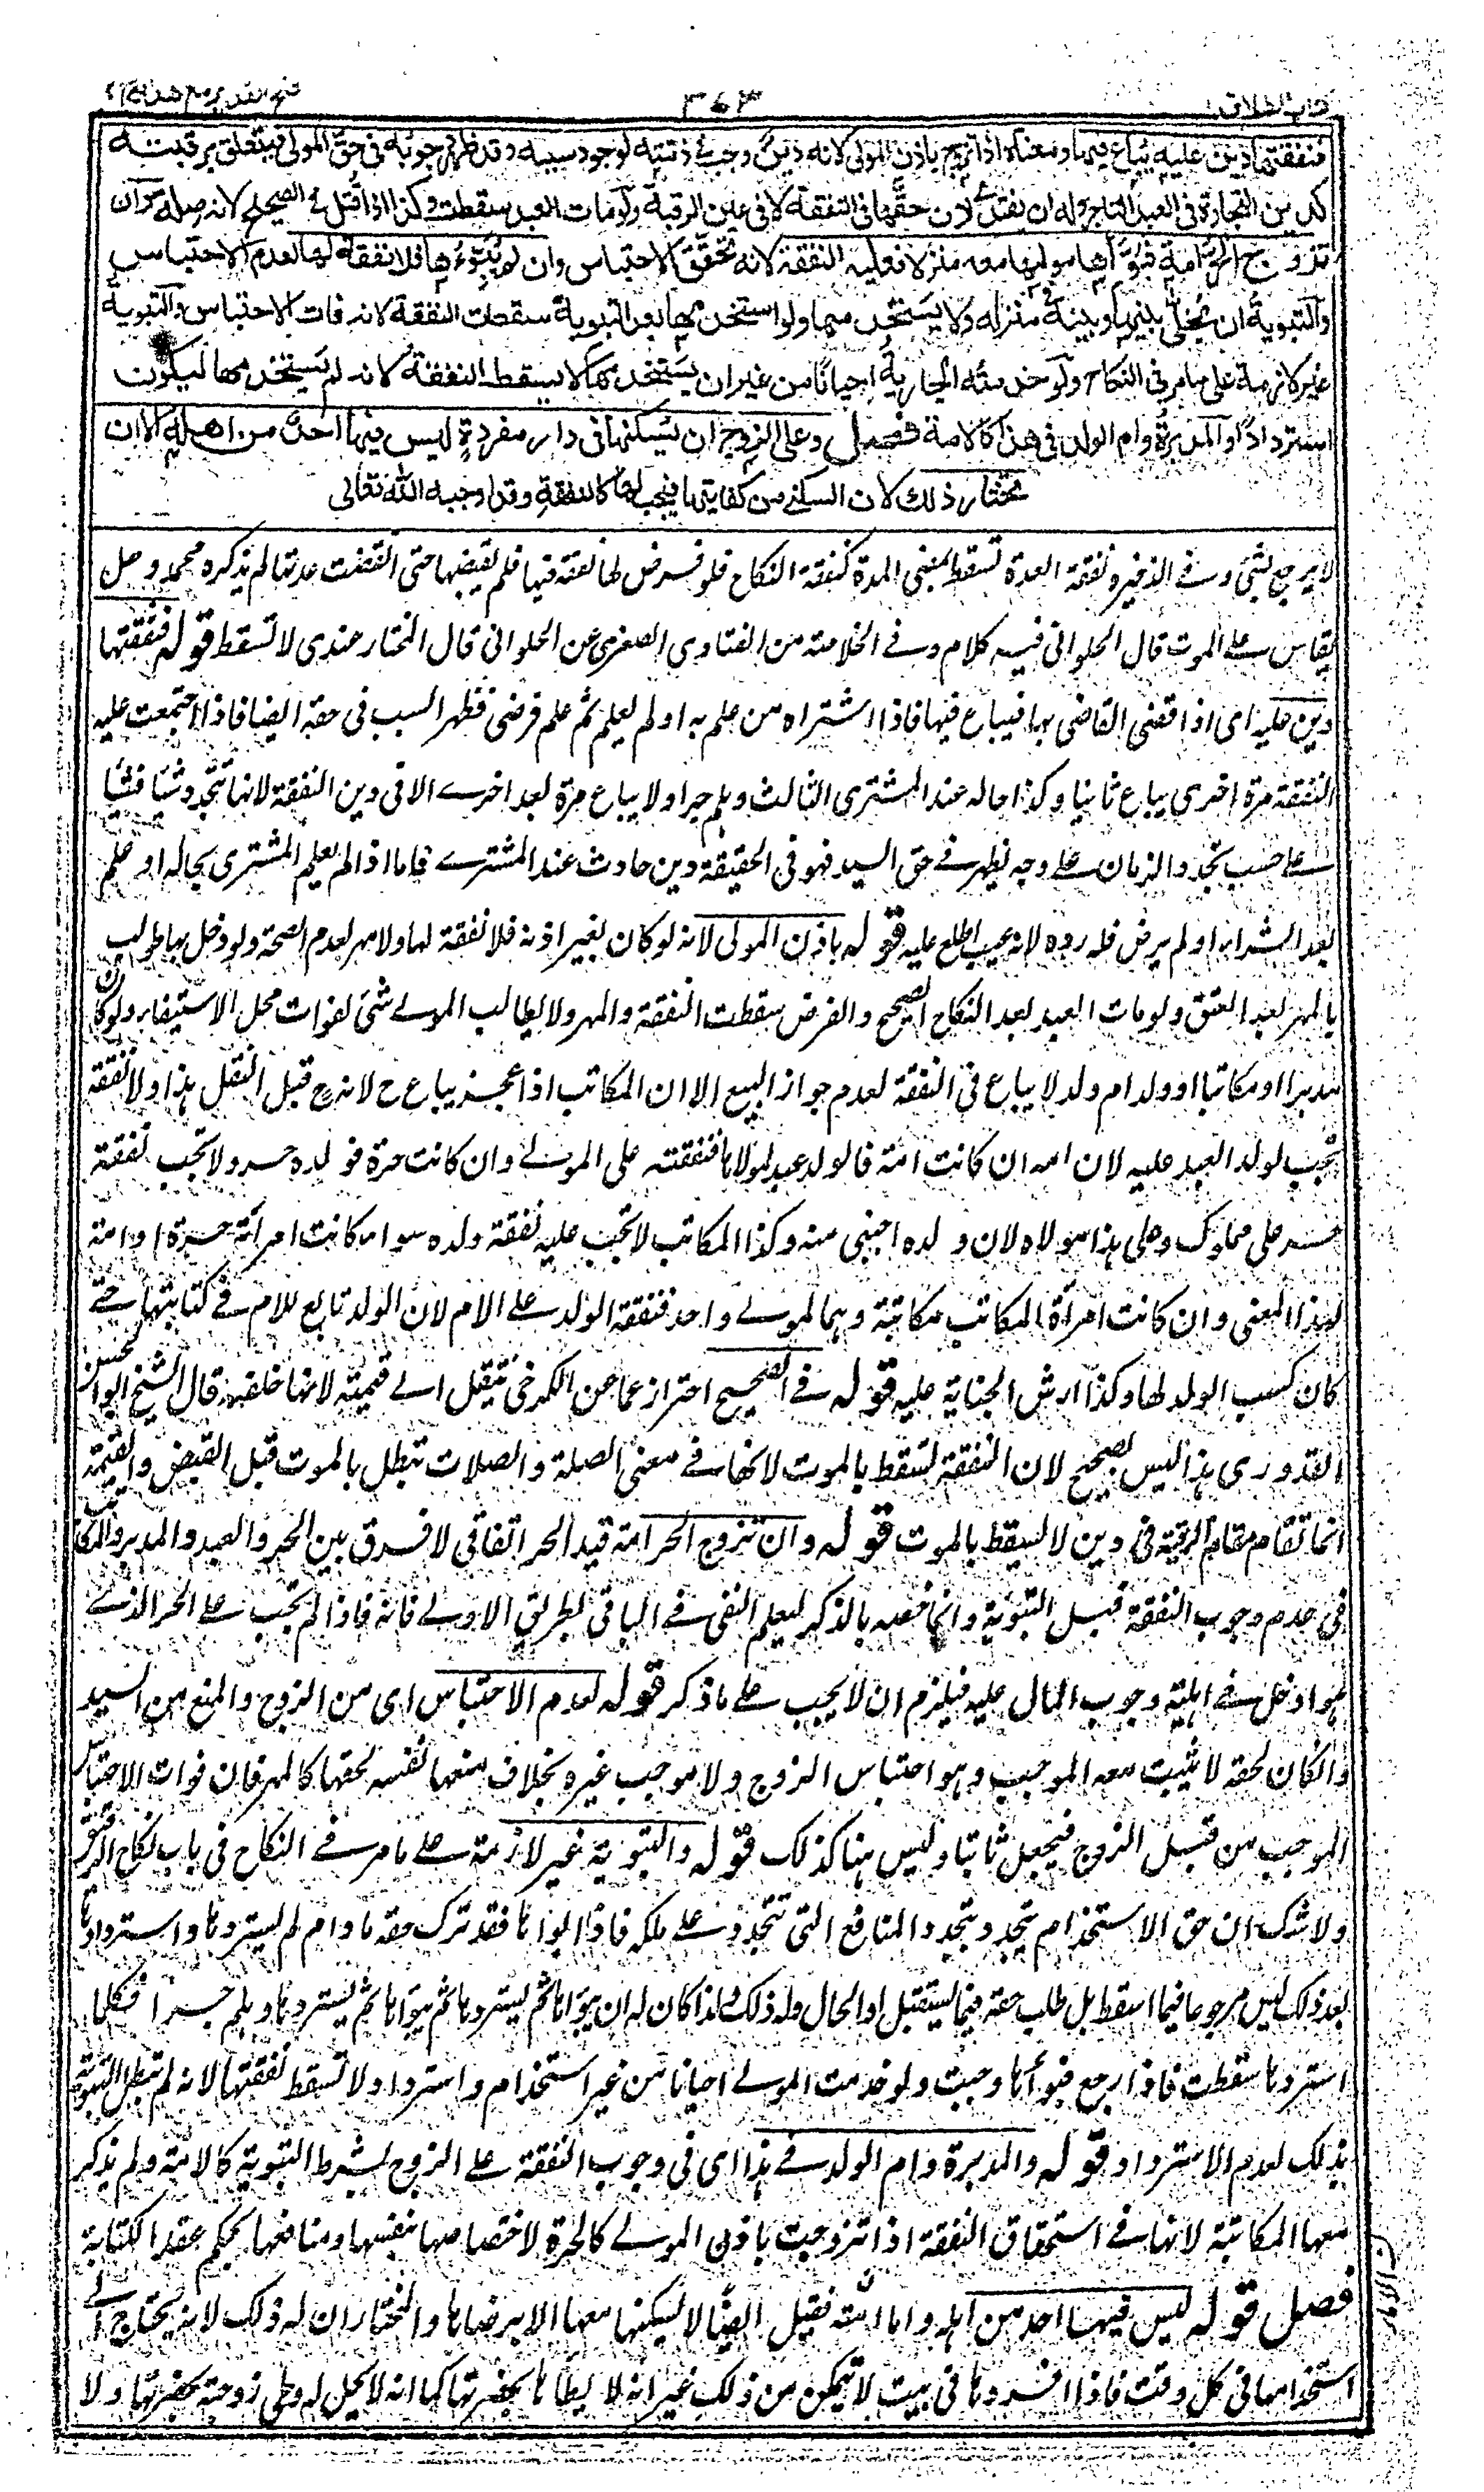 كتاب الطلاق ٣٤٣ فتح القدير مع هداية ج٢
فنفقتها دين عليه يباع فيها ومعناه اذا تزوج باذن المولى لانه دين وجب في ذمته لوجود سببه وقد ظهر وجوبه في حق المولى فيتعلق برقبته
كدين التجارة في العبد التاجر وله ان يفتدى لان حقها في النفقة لا في عين الرقبة ولومات العبد سقطت وكذا اذا قتل في الصحيح لانه صلة وان
تزوج الحر امة فبوأها مولاها معه منزلا فعليه النفقة لانه تحقق الاحتباس وان لم يبوءها فلا نفقة لها لعدم الاحتباس
والتبوية ان يخلى بينها وبينه في منزله ولا يستخدمها ولو استخدمها بعد التبوية سقطت النفقة لانه فات الاحتباس والتبوية
غير لازمة على ما مر في النكاح ولو خدمته الجارية احيانا من غير ان يستخدمها لا يسقط النفقة لانه لم يستخدمها ليكون
استردادا والمدبرة وام الولد في هذا كالامة فصل وعلى الزوج ان يسكنها في دار مفردة ليس فيها احد من اهله الا ان
تختار ذلك لان السكنى من كفايتها فيجب لها كالنفقة وقد اوجبه الله تعالى
لا يرجع بشئ وفي الذخيرة نفقة العدة تسقط بمضي المدة كنفقة النكاح فلو فرض لها نفقة فيها فلم تقبضها حتى انقضت عدتها لم يذكره محمد وهل
يقاس على الموت قال الحلواني فيه كلام وفي الخلاصة من الفتاوى الصغرى عن الحلواني قال المختار عندى لا تسقط قوله فنفقتها
دين عليه اى اذا قضى القاضى بها فيباع فيها فاذا اشتراه من علم به او لم يعلم ثم علم فرضى فظهر السبب في حقه ايضا فاذا اجتمعت عليه
النفقة مرة اخرى يباع ثانيا وكذا حاله عند المشترى الثالث وهلم جرا ولا يباع مرة بعد اخرى الا في دين النفقة لانها تتجدد شيئا فشيئا
على حسب تجدد الزمان على وجه يظهر في حق السيد فهو في الحقيقة دين حادث عند المشترى فاما اذا لم يعلم المشترى بحاله او علم
بعد الشراء ولم يرض فله رده لانه عيب اطلع عليه قوله باذن المولى لانه لو كان بغير اذنه فلا نفقة لها ولا مهر لعدم الصحة ولو دخل بها طولب
بالمهر بعد العتق ولومات العبد بعد النكاح الصحيح والفرض سقطت النفقة والمهر ولا يطالب المولى بشئ لفوات محل الاستيفاء ولو كان
مدبرا او مكاتبا او ولد ام ولد لا يباع في النفقة لعدم جواز البيع الا ان المكاتب اذا عجز يباع ح لانه ح قبل النقل هذا ولا نفقة
تجب لولد العبد عليه لان امه ان كانت امة فالولد عبد لمولاها فنفقته على المولى وان كانت حرة فولده حر ولا تجب نفقة
حر على مملوك وعلى هذا مولاه لان ولده اجنبى منه وكذا المكاتب لا تجب عليه نفقة ولده سواء كانت امرأته حرة او امة
لهذا المعنى وان كانت امرأة المكاتب مكاتبة وهما لمولى واحد فنفقة الولد على الام لان الولد تابع للام في كتابتها حتى
كان كسب الولد لها وكذا ارش الجناية عليه قوله في الصحيح احتراز عما عن الكرخى تنتقل الى قيمته لانها خلفه قال الشيخ ابو الحسن
القدورى هذا ليس بصحيح لان النفقة تسقط بالموت لانها في معنى الصلة والصلات تبطل بالموت قبل القبض والقيمة
انما تقام مقام الرقبة في دين لا يسقط بالموت قوله وان تزوج الحر امة قيد الحر اتفاقى لا فرق بين الحر والعبد والمدبر والمكاتب
في عدم وجوب النفقة قبل التبوية وانما خصه بالذكر ليعلم النفى في الباقى بطريق الاولى فانه فاذا لم تجب على الحر الذى
هو ادخل في اهلية وجوب المال عليه فيلزم ان لا يجب على ما ذكر قوله لعدم الاحتباس اى من الزوج والمنع من السيد
وان كان لحقه لا يثبت معه الموجب وهو احتباس الزوج ولا موجب غيره بخلاف منعها نفسه لحقها كالمهر فان فوات الاحتباس
الموجب من قبل الزوج فيجعل ثابتا وليس هنا كذلك قوله والتبوية غير لازمة على ما مر في النكاح في باب نكاح الرقيق
ولا شك ان حق الاستخدام يتجدد بتجدد المنافع التى تتجدد على ملكه فاذا بوأها فقد ترك حقه ما دام لم يستردها واستردادها
بعد ذلك ليس رجوعا فيما اسقط بل طلب حقه فيما يستقبل او الحال وله ذلك ولذا كان له ان يبوأها ثم يستردها ثم يبوأها ثم يستردها وهلم جرا فكلما
استردها سقطت فاذا رجع فبوأها وجبت ولو خدمت المولى احيانا من غير استخدام واسترداد لا تسقط نفقتها لانه لم تبطل التبوية
بذلك لعدم الاسترداد قوله والمدبرة وام الولد في هذا اى في وجوب النفقة على الزوج بشرط التبوية كالامة ولم يذكر
معها المكاتبة لانها في استحقاق النفقة اذا تزوجت باذن المولى كالحرة لاختصاصها بنفسها ومنافعها بحكم عقد الكتابة
فصل قوله ليس فيها احد من اهله واما امته فقيل ايضا لا يسكنها معها الا برضاها والمختار ان له ذلك لانه يحتاج الى
استخدامها في كل وقت فاذا افردها في بيت لا يتمكن من ذلك غير انه لا يطأها بحضرتها كما انه لا يحل له وطى زوجته بحضرتها ولا